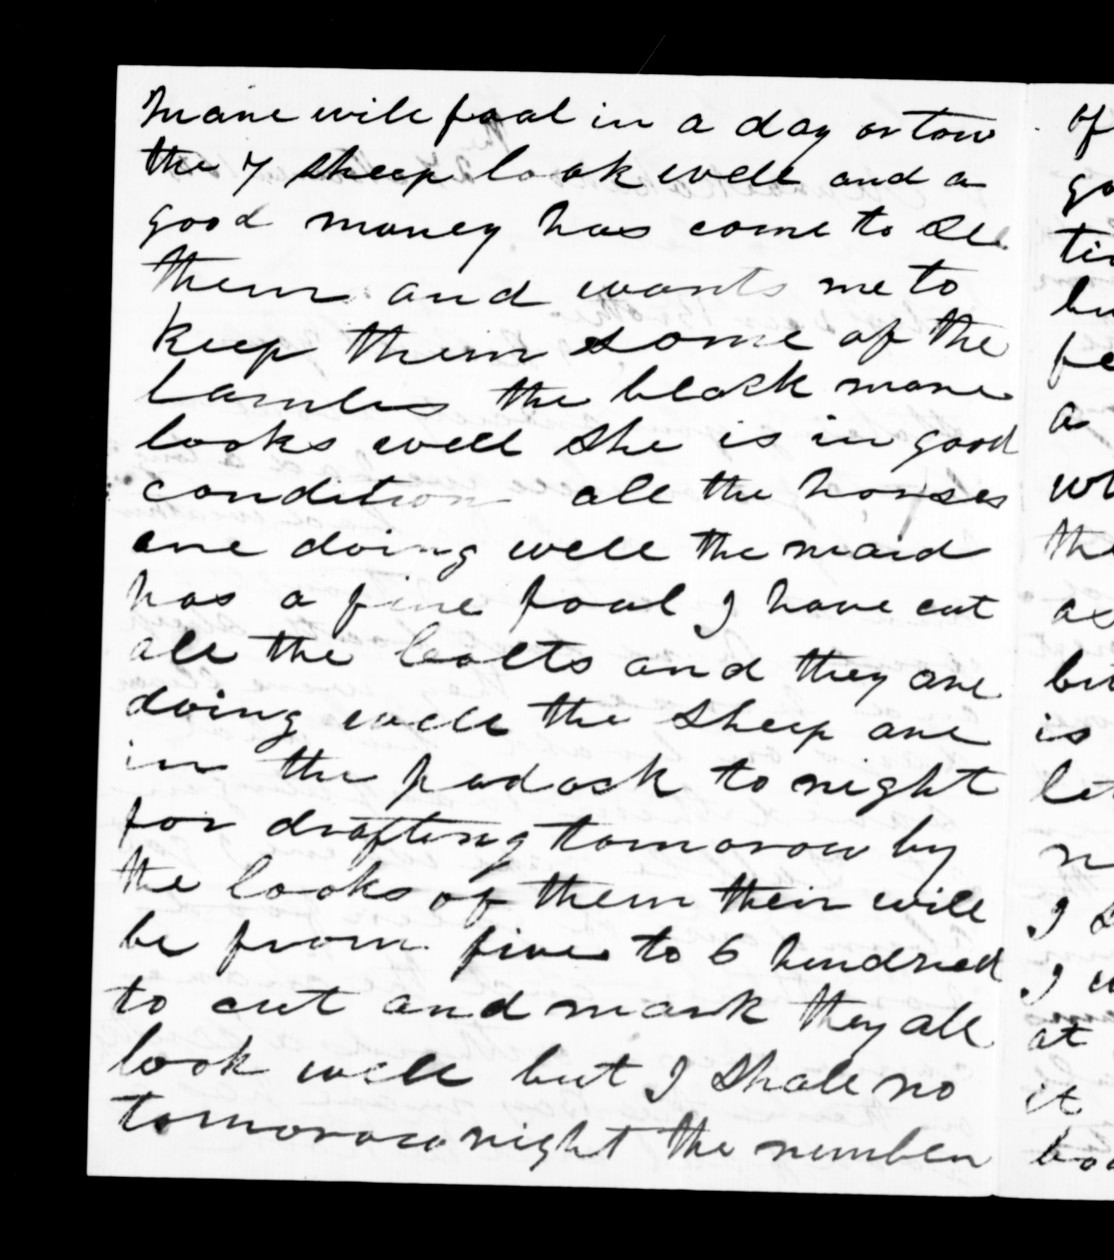 mare will foal in a day or tow
the 7 sheep look well and a
good money has come to see
them and wants me to
keep them some of the
Lambs the black mare
looks well she is in good
condition all the horses
are doing well the maid
has a fine foal I have cut
all the Coalts and they are
doing well the sheep are
in the padock to night
for drafting tomorow by
the looks of them their will
be from five to 6 hundred
to cut and mark they all
look well but I shall no
tomorow night the number
of
go
tin
bu
fe
a
wh
the
as
bu
is
let
n
I s
I w
at
it
boo